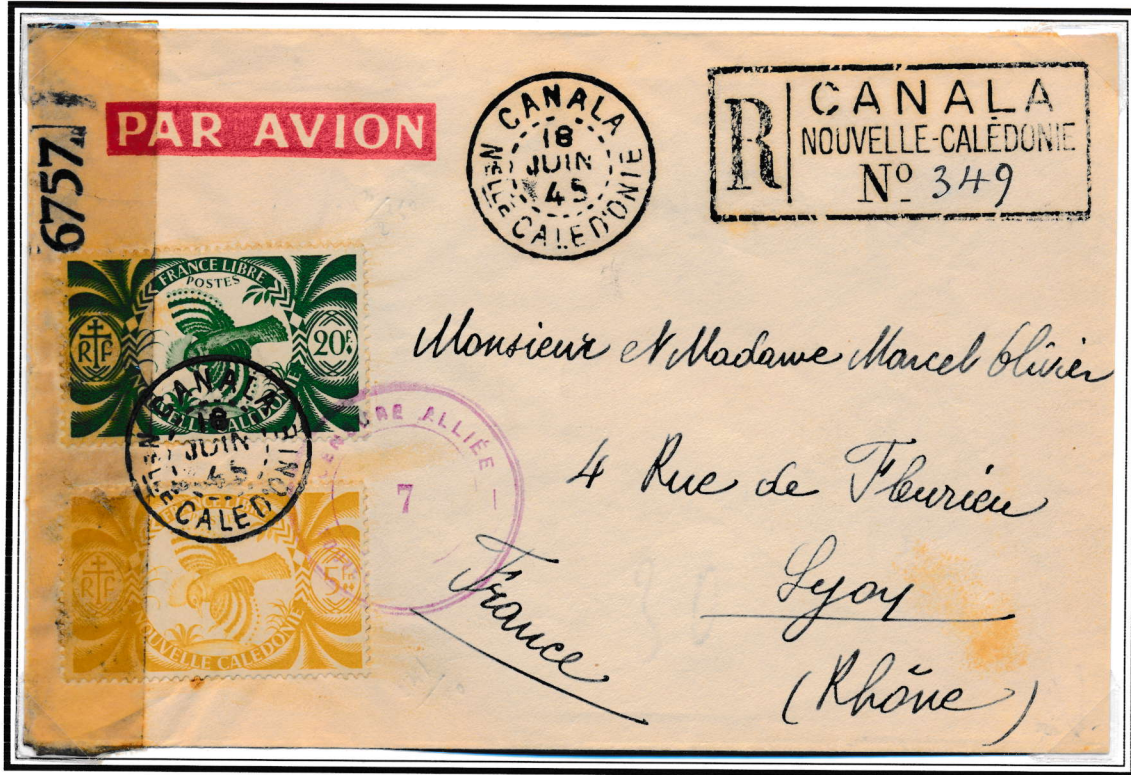 6757
PAR AVION
CANALA
18
JUIN
45
NELLE CALEDONIE
R
CANALA
NOUVELLE-CALÉDONIE
No 349
FRANCE LIBRE
POSTES
RF
20F.
CANALA
18
JUIN
45
NELLE CALEDONIE
ALLIÉE
7
RF
5F.
NOUVELLE CALEDONIE
Monsieur et Madame Marcel Olivier
4 Rue de Fleurieu
Lyon
(Rhône)
France